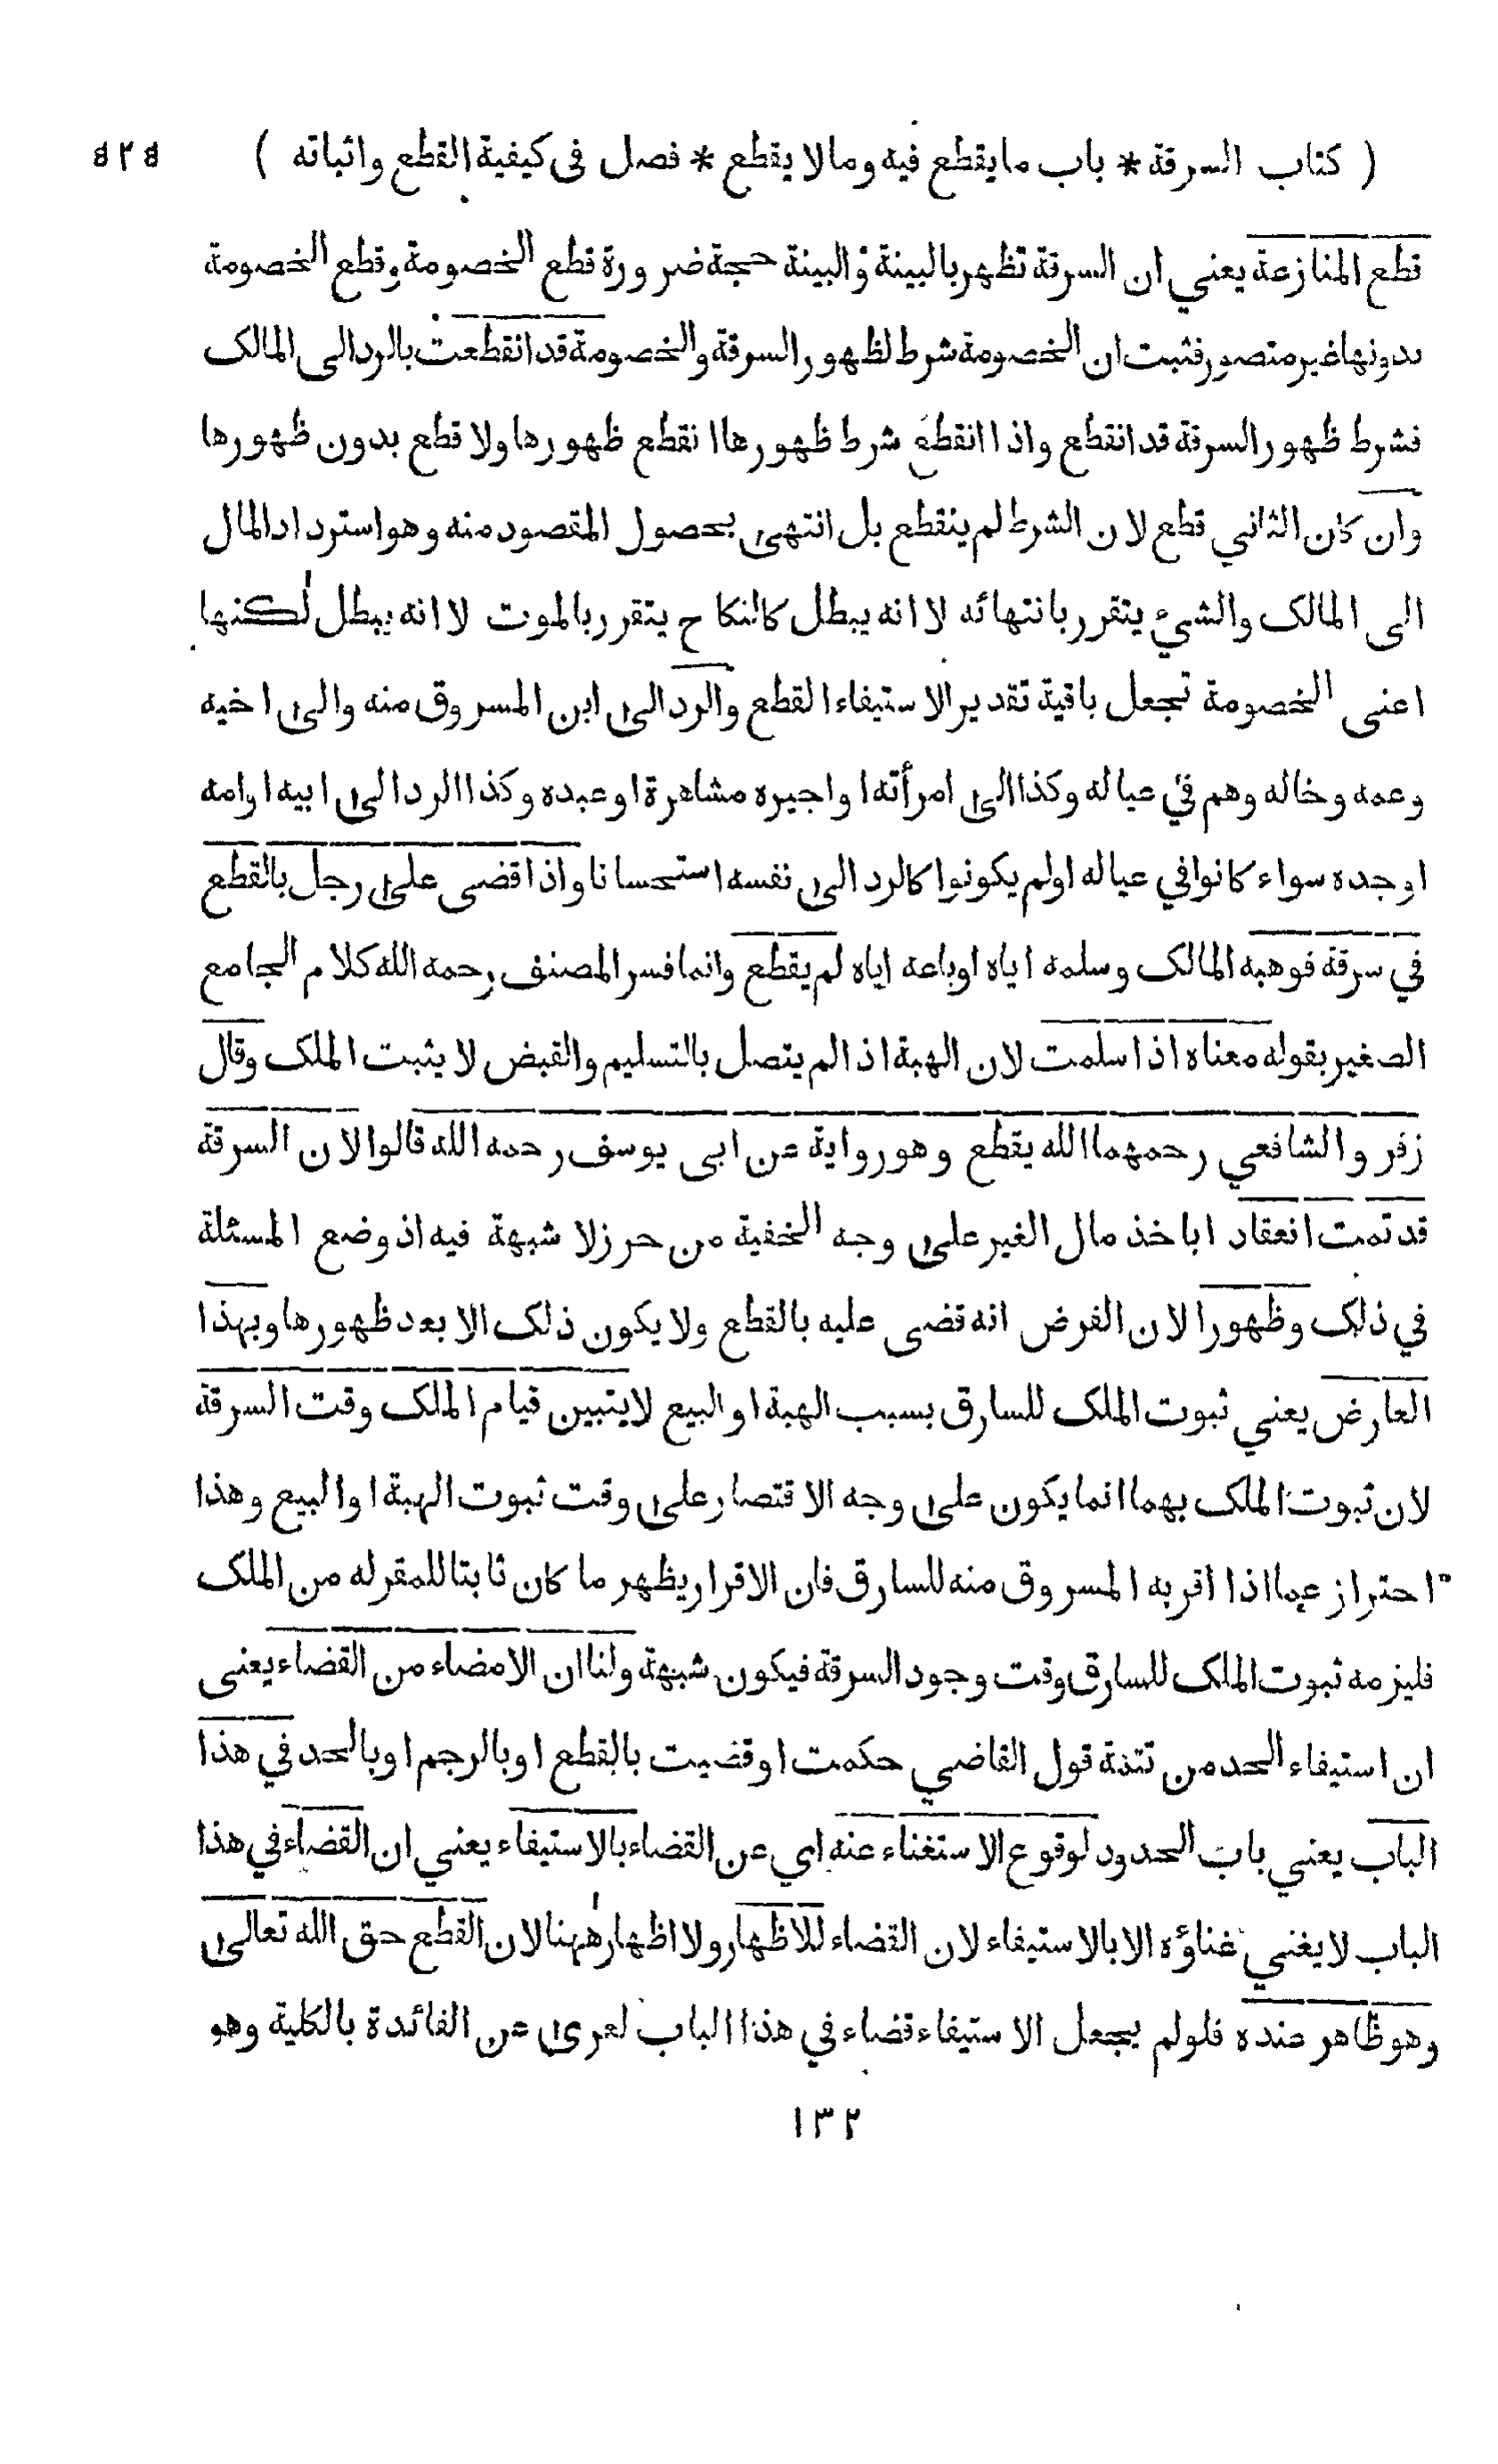 ( كتاب السرقة * باب ما يقطع فيه وما لا يقطع * فصل فى كيفية القطع واثباته ) ٥٢٥
قطع المنازعة يعني ان السرقة تظهر بالبينة والبينة حجة ضرورة قطع الخصومة وقطع الخصومة
بدونها غير متصور فثبت ان الخصومة شرط لظهور السرقة والخصومة قد انقطعت بالرد الى المالك
فشرط ظهور السرقة قد انقطع واذا انقطع شرط ظهورها انقطع ظهورها ولا قطع بدون ظهورها
وان كان الثاني قطع لان الشرط لم ينقطع بل انتهى بحصول المقصود منه وهو استرداد المال
الى المالك والشيء يتقرر بانتهائه لا انه يبطل كالنكاح يتقرر بالموت لا انه يبطل لكنها
اعنى الخصومة تجعل باقية تقدير الاستيفاء القطع والرد الى ابن المسروق منه والى اخيه
وعمه وخاله وهم في عياله وكذا الى امرأته او اجيره مشاهرة او عبده وكذا الرد الى ابيه او امه
او جده سواء كانوا في عياله او لم يكونوا كالرد الى نفسه استحسانا واذا قضى على رجل بالقطع
في سرقة فوهبه المالك وسلمه اياه او باعه اياه لم يقطع وانما فسر المصنف رحمه الله كلام الجامع
الصغير بقوله معناه اذا سلمت لان الهبة اذا لم يتصل بالتسليم والقبض لا يثبت الملك وقال
زفر والشافعي رحمهما الله يقطع وهو رواية عن ابى يوسف رحمه الله قالوا لان السرقة
قد تمت انعقاد ا باخذ مال الغير على وجه الخفية من حرز لا شبهة فيه اذ وضع المسئلة
في ذلك وظهورا لان الفرض انه قضى عليه بالقطع ولا يكون ذلك الا بعد ظهورها وبهذا
العارض يعني ثبوت الملك للسارق بسبب الهبة او البيع لا يتبين قيام الملك وقت السرقة
لان ثبوت الملك بهما انما يكون على وجه الاقتصار على وقت ثبوت الهبة او البيع وهذا
احتراز عما اذا اقر به المسروق منه للسارق فان الاقرار يظهر ما كان ثابتا للمقر له من الملك
فليزمه ثبوت الملك للسارق وقت وجود السرقة فيكون شبهة ولنا ان الامضاء من القضاء يعنى
ان استيفاء الحد من تتمة قول القاضي حكمت او قضيت بالقطع او بالرجم او بالحد في هذا
الباب يعني باب الحدود لوقوع الاستغناء عنه اي عن القضاء بالاستيفاء يعني ان القضاء في هذا
الباب لا يغني غناؤه الا بالاستيفاء لان القضاء للاظهار ولا اظهار ههنا لان القطع حق الله تعالى
وهو ظاهر عنده فلو لم يجعل الاستيفاء قضاء في هذا الباب لعرى عن الفائدة بالكلية وهو
١٣٢